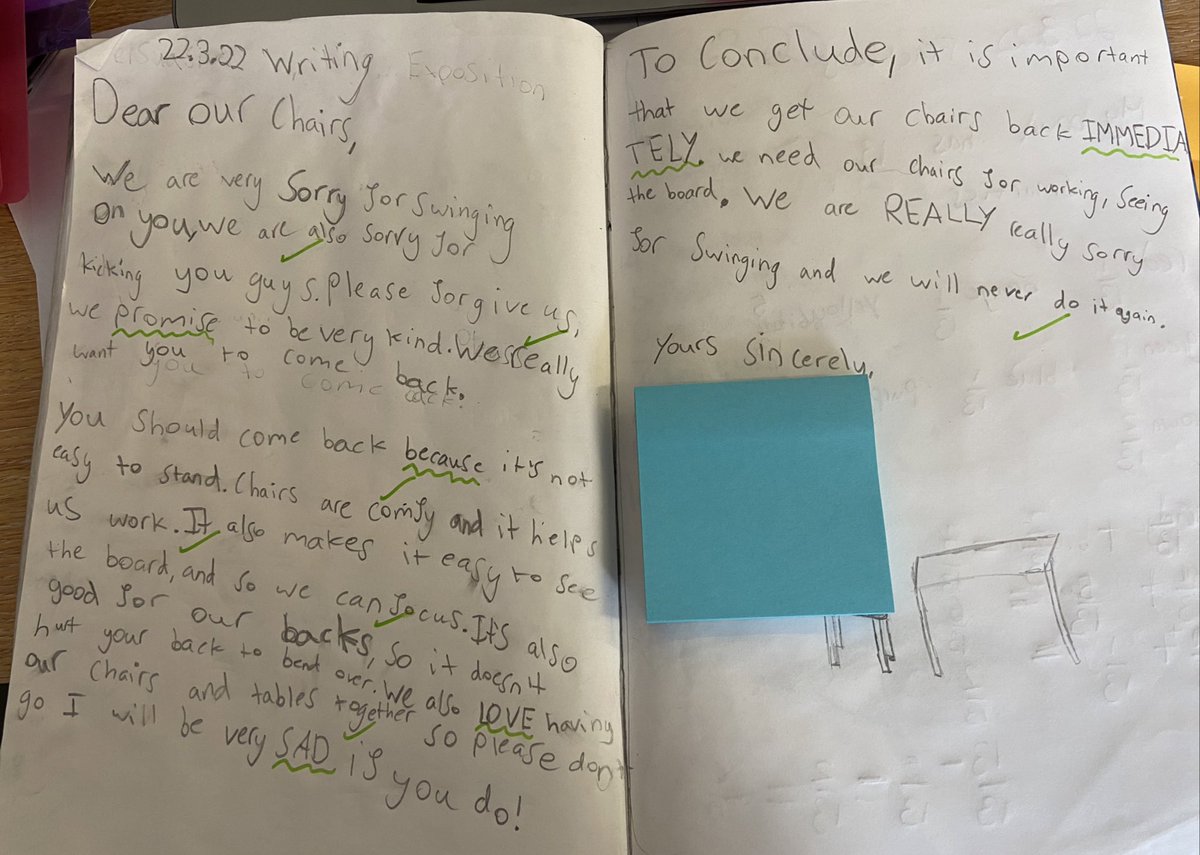 22.3.22 Writing Exposition
Dear our Chairs,
We are very Sorry for swinging
on you, we are also sorry for
kicking you guys. Please forgive us,
we promise to be very kind. We really
want you to come back.
you to come back.
You should come back because it's not
easy to stand. Chairs are comfy and it helps
us work. It also makes it easy to see
the board, and so we can focus. It's also
good for our backs, so it doesn't
hurt your back to bend over. We also LOVE having
our chairs and tables together so please don't
go I will be very SAD if you do!
To Conclude, it is important
that we get our chairs back IMMEDIA
TELY. we need our chairs for working, seeing
the board. We are REALLY really sorry
for swinging and we will never do it again.
Yours sincerely,